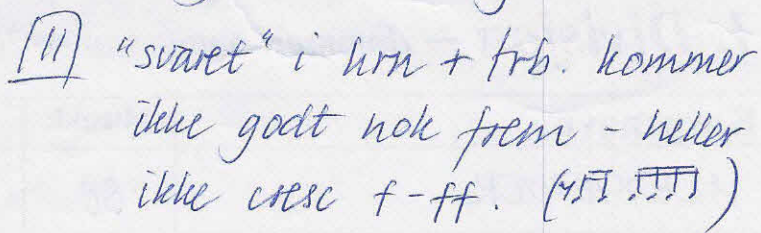 11 "svaret" i hrn + trb. kommer
ikke godt nok frem - heller
ikke cresc f-ff. ( )